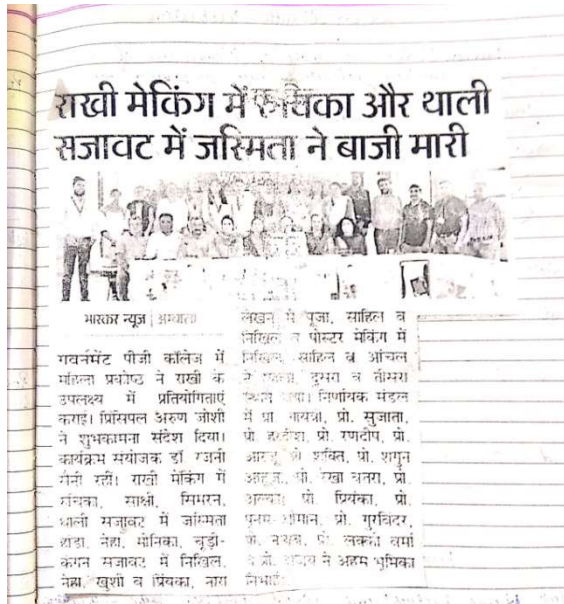 राखी मेकिंग में और थाली
सजावट में जस्मिता ने बाजी मारी
भास्कर न्यूज | अम्बाला
गवर्नमेंट पीजी कॉलेज में
महिला प्रकोष्ठ ने राखी के
उपलक्ष्य में प्रतियोगिताएं
कराई। प्रिंसिपल अरुण जोशी
ने शुभकामना संदेश दिया।
कार्यक्रम संयोजक डॉ रजनी
सैनी रहीं। राखी मेकिंग में
साक्षी, सिमरन,
थाली सजावट में जस्मिता
हाडा, नेहा, मोनिका, चूड़ी-
कंगन सजावट में निखिल,
नेहा, खुशी व प्रियंका, नारा
लेखन में पूजा, साहिल व
निखिल व पोस्टर मेकिंग में
निखिल, साहिल व आंचल
ने पहला, दूसरा व तीसरा
स्थान पाया। निर्णायक मंडल
में प्रो गायत्री, प्रो. सुजाता,
प्रो. प्रो. रणदीप, प्रो.
प्रो शक्ति, प्रो. शगुन
आहूजा, प्रो. रेखा बतरा, प्रो.
अल्का, प्रो प्रियंका, प्रो.
पूनम प्रो. गुरविंदर,
प्रो. प्रो. लक्की वर्मा
व प्रो. ने अहम भूमिका
निभाई।